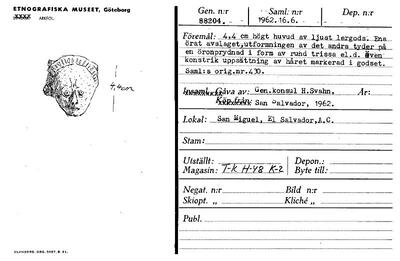 ETNOGRAFISKA MUSEET, Göteborg
ARKEOL.
4,4cm
Gen. n:r
88204.
Saml. n:r
1962.16.6.
Dep. n:r
Föremål: 4.4 cm högt huvud av ljust lergods. Ena
örat avslaget, utformningen av det andra tyder på
en öronprydnad i form av rund trissa el.d. Även
konstrik uppsättning av håret markerad i godset.
Saml:s orig.nr.430.
Gåva av: Gen.konsul H.Svahn. År:
San Salvador, 1962.
Lokal: San Miguel, El Salvador, A.C.
Stam:
Utställt: Depon.:
Magasin: T-K H-48 K-2 Byte till:
Negat. n:r Bild n:r
Skiopt. „ Kliché „
Publ.